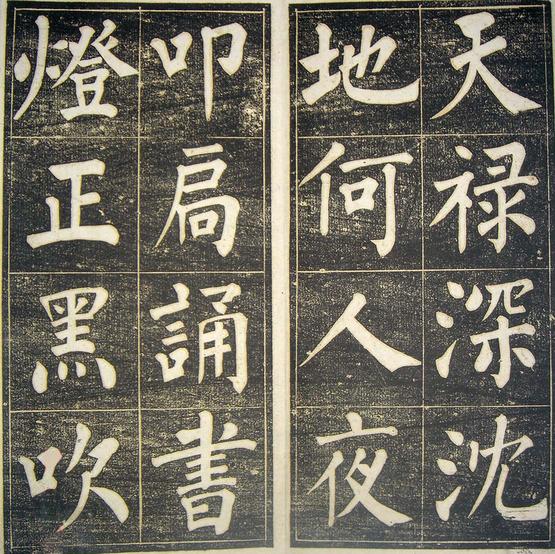 天禄深沈
地何人夜
叩扃誦書
燈正黑吹